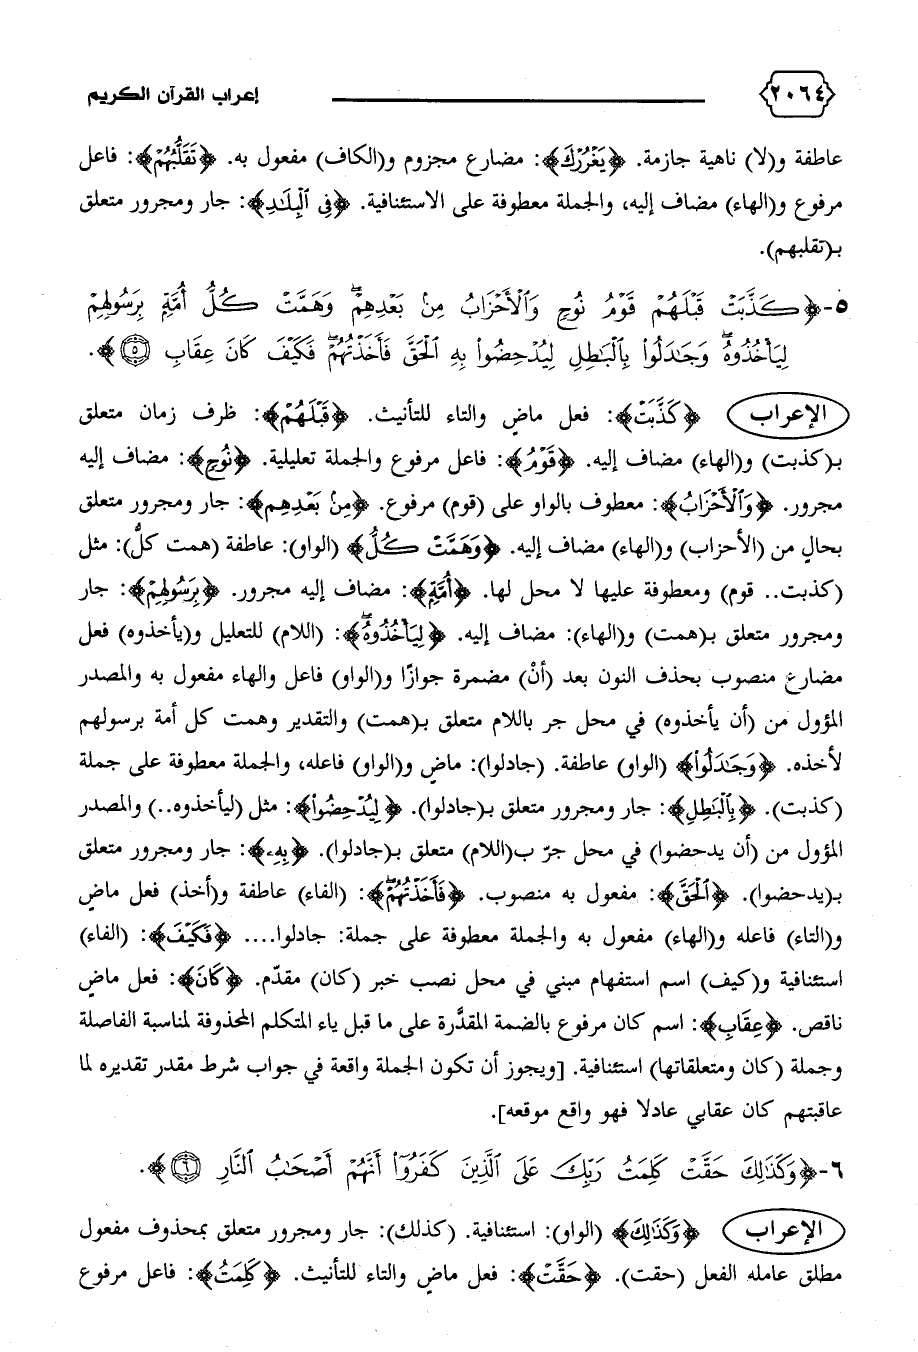 ٢٠٦٤ إعراب القرآن الكريم
عاطفة و(لا) ناهية جازمة. ﴿يَغْرُرْكَ﴾: مضارع مجزوم و(الكاف) مفعول به. ﴿تَقَلُّبُهُمْ﴾: فاعل
مرفوع و(الهاء) مضاف إليه، والجملة معطوفة على الاستئنافية. ﴿فِي ٱلْبِلَـٰدِ﴾: جار ومجرور متعلق
بـ(تقلبهم).
٥-﴿كَذَّبَتْ قَبْلَهُمْ قَوْمُ نُوحٍ وَٱلْأَحْزَابُ مِنۢ بَعْدِهِمْ ۖ وَهَمَّتْ كُلُّ أُمَّةٍۭ بِرَسُولِهِمْ
لِيَأْخُذُوهُ ۖ وَجَـٰدَلُوا۟ بِٱلْبَـٰطِلِ لِيُدْحِضُوا۟ بِهِ ٱلْحَقَّ فَأَخَذْتُهُمْ ۖ فَكَيْفَ كَانَ عِقَابِ ٥﴾.
الإعراب ﴿كَذَّبَتْ﴾: فعل ماضٍ والتاء للتأنيث. ﴿قَبْلَهُمْ﴾: ظرف زمان متعلق
بـ(كذبت) و(الهاء) مضاف إليه. ﴿قَوْمُ﴾: فاعل مرفوع والجملة تعليلية. ﴿نُوحٍ﴾: مضاف إليه
مجرور. ﴿وَٱلْأَحْزَابُ﴾: معطوف بالواو على (قوم) مرفوع. ﴿مِنۢ بَعْدِهِمْ﴾: جار ومجرور متعلق
بحالٍ من (الأحزاب) و(الهاء) مضاف إليه. ﴿وَهَمَّتْ كُلُّ﴾ (الواو): عاطفة (همت كلُّ): مثل
(كذبت.. قوم) ومعطوفة عليها لا محل لها. ﴿أُمَّةٍۭ﴾: مضاف إليه مجرور. ﴿بِرَسُولِهِمْ﴾: جار
ومجرور متعلق بـ(همت) و(الهاء): مضاف إليه. ﴿لِيَأْخُذُوهُ ۖ﴾: (اللام) للتعليل و(يأخذوه) فعل
مضارع منصوب بحذف النون بعد (أنْ) مضمرة جوازًا و(الواو) فاعل والهاء مفعول به والمصدر
المؤول من (أن يأخذوه) في محل جر باللام متعلق بـ(همت) والتقدير وهمت كل أمة برسولهم
لأخذه. ﴿وَجَـٰدَلُوا۟﴾ (الواو) عاطفة. (جادلوا): ماضٍ و(الواو) فاعله، والجملة معطوفة على جملة
(كذبت). ﴿بِٱلْبَـٰطِلِ﴾: جار ومجرور متعلق بـ(جادلوا). ﴿لِيُدْحِضُوا۟﴾: مثل (ليأخذوه..) والمصدر
المؤول من (أن يدحضوا) في محل جرّ ب(اللام) متعلق بـ(جادلوا). ﴿بِهِۦ﴾: جار ومجرور متعلق
بـ(يدحضوا). ﴿ٱلْحَقَّ﴾: مفعول به منصوب. ﴿فَأَخَذْتُهُمْ ۖ﴾: (الفاء) عاطفة و(أخذ) فعل ماضٍ
و(التاء) فاعله و(الهاء) مفعول به والجملة معطوفة على جملة: جادلوا.... ﴿فَكَيْفَ﴾: (الفاء)
استئنافية و(كيف) اسم استفهام مبني في محل نصب خبر (كان) مقدّم. ﴿كَانَ﴾: فعل ماضٍ
ناقص. ﴿عِقَابِ﴾: اسم كان مرفوع بالضمة المقدَّرة على ما قبل ياء المتكلم المحذوفة لمناسبة الفاصلة
وجملة (كان ومتعلقاتها) استئنافية. [ويجوز أن تكون الجملة واقعة في جواب شرط مقدر تقديره لما
عاقبتهم كان عقابي عادلا فهو واقع موقعه].
٦-﴿وَكَذَٰلِكَ حَقَّتْ كَلِمَتُ رَبِّكَ عَلَى ٱلَّذِينَ كَفَرُوٓا۟ أَنَّهُمْ أَصْحَـٰبُ ٱلنَّارِ ٦﴾.
الإعراب ﴿وَكَذَٰلِكَ﴾ (الواو): استئنافية. (كذلك): جار ومجرور متعلق بمحذوف مفعول
مطلق عامله الفعل (حقت). ﴿حَقَّتْ﴾: فعل ماضٍ والتاء للتأنيث. ﴿كَلِمَتُ﴾: فاعل مرفوع